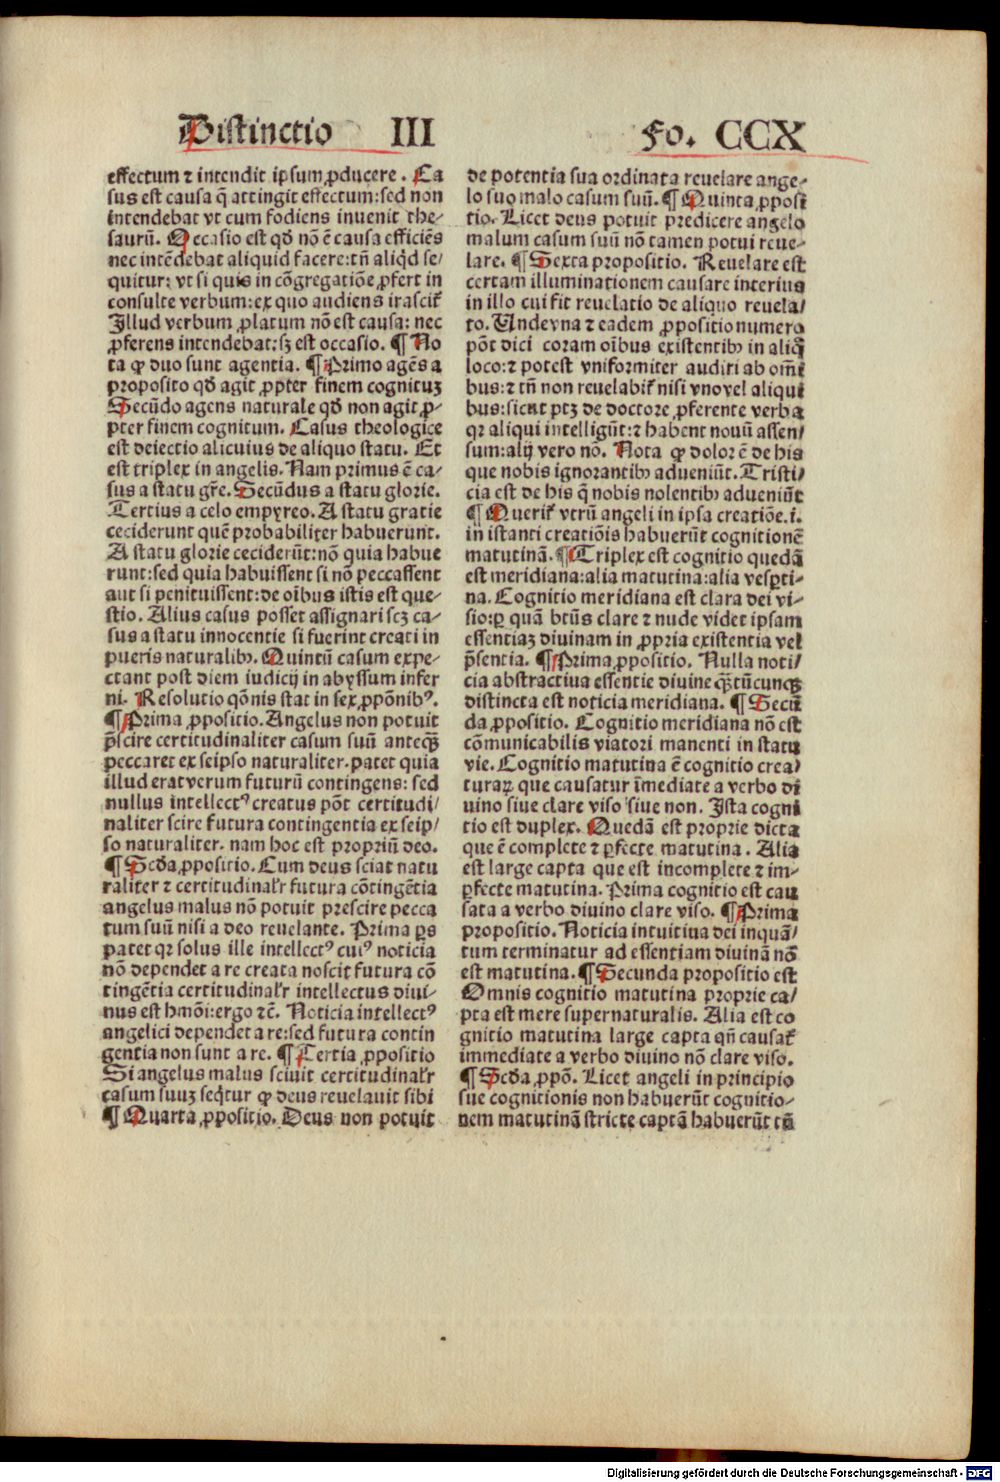 Distinctio III
Fo. CCX
effectum ⁊ intendit ipsum ꝓducere . Ca
sus est causa q̄ attingit effectum: sed non
intendebat vt cum fodiens inuenit the-
saurū. Occasio est qđ nō ē causa efficiēs
nec intēdebat aliquid facere: tn̄ aliqđ se/
quitur: vt si quis in cōgregatiōe ꝓfert in
consulte verbum: ex quo audiens irascit᷑
Illud verbum ꝓlatum nō est causa: nec
ꝓferens intendebat: sꝫ est occasio. ¶ No
ta ꝙ duo sunt agentia. ¶ Primo agēs a
proposito qđ agit ꝓpter finem cognituꝫ
Secūdo agens naturale qđ non agit ꝓ-
pter finem cognitum. Casus theologice
est deiectio alicuius de aliquo statu. Et
est triplex in angelis. Nam primus ē ca-
sus a statu gr̄e. Secūdus a statu glorie.
Tertius a celo empyreo. A statu gratie
ceciderunt quē probabiliter habuerunt.
A statu glorie ceciderūt: nō quia habue
runt: sed quia habuissent si nō peccassent
aut si penituissent: de oībus istis est que-
stio. Alius casus posset assignari scꝫ ca-
sus a statu innocentie si fuerint creati in
pueris naturalibꝰ. Quintū casum expe-
ctant post diem iudicij in abyssum infer
ni. Resolutio qōnis stat in sex ꝓpōnibꝰ.
¶ Prima ꝓpositio. Angelus non potuit
p̄scire certitudinaliter casum suū anteqꝫ
peccaret ex seipso naturaliter. patet quia
illud erat verum futurū contingens: sed
nullus intellectꝰ creatus pōt certitudi/
naliter scire futura contingentia ex seip/
so naturaliter. nam hoc est propriū deo.
¶ Scđa ꝓpositio. Cum deus sciat natu
raliter ⁊ certitudinalr̄ futura cōtingētia
angelus malus nō potuit prescire pecca
tum suū nisi a deo reuelante. Prima ꝑs
patet qꝛ solus ille intellectꝰ cuiꝰ noticia
nō dependet a re creata noscit futura cō
tingētia certitudinalr̄ intellectus diui-
nus est hmōi: ergo ⁊c̄. Noticia intellectꝰ
angelici dependet a re: sed futura contin
gentia non sunt a re. ¶ Tertia ꝓpositio
Si angelus malus sciuit certitudinalr̄
casum suuꝫ seq̄tur ꝙ deus reuelauit sibi
¶ Quarta ꝓpositio. Deus non potuit
de potentia sua ordinata reuelare ange-
lo suo malo casum suū. ¶ Quinta ꝓposi
tio. Licet deus potuit predicere angelo
malum casum suū nō tamen potui reue-
lare. ¶ Sexta propositio. Reuelare est
certam illuminationem causare interius
in illo cui fit reuelatio de aliquo reuela/
to. Unde vna ⁊ eadem ꝓpositio numero
pōt dici coram oībus existentibꝰ in aliq̊
loco: ⁊ potest vniformiter audiri ab omī
bus: ⁊ tn̄ non reuelabit᷑ nisi vno vel aliqui
bus: sicut ptꝫ de doctore ꝓferente verba
qꝛ aliqui intelligūt: ⁊ habent nouū assen/
sum: alij vero nō. Nota ꝙ dolor ē de his
que nobis ignorantibꝰ adueniūt. Tristi/
cia est de his q̄ nobis nolentibꝰ adueniūt
¶ Querit᷑ vtrū angeli in ipsa creatiōe .i.
in istanti creatiōis habuerūt cognitionē
matutinā. ¶ Triplex est cognitio quedā
est meridiana: alia matutina: alia vesꝑti-
na. Cognitio meridiana est clara dei vi-
sio: ꝑ quā btūs clare ⁊ nude videt ipsam
essentiaꝫ diuinam in ꝓpria existentia vel
p̄sentia. ¶ Prima ꝓpositio. Nulla noti/
cia abstractiua essentie diuine qꝫtūcunqꝫ
distincta est noticia meridiana. ¶ Secū
da ꝓpositio. Cognitio meridiana nō est
cōmunicabilis viatori manenti in statu
vie. Cognitio matutina ē cognitio crea/
turaꝝ que causatur īmediate a verbo di
uino siue clare viso siue non. Ista cogni
tio est duplex. Quedā est proprie dicta
que ē complete ⁊ ꝑfecte matutina . Alia
est large capta que est incomplete ⁊ im-
ꝑfecte matutina. Prima cognitio est cau
sata a verbo diuino clare viso. ¶ Prima
propositio. Noticia intuitiua dei inquā/
tum terminatur ad essentiam diuinā nō
est matutina. ¶ Secunda propositio est
Omnis cognitio matutina proprie ca/
pta est mere supernaturalis. Alia est co
gnitio matutina large capta qn̄ causat᷑
immediate a verbo diuino nō clare viso.
¶ Scđa ꝓpō. Licet angeli in principio
sue cognitionis non habuerūt cognitio-
nem matutinā stricte captā habuerūt tn̄
Digitalisierung gefördert durch die Deutsche Forschungsgemeinschaft - DFG